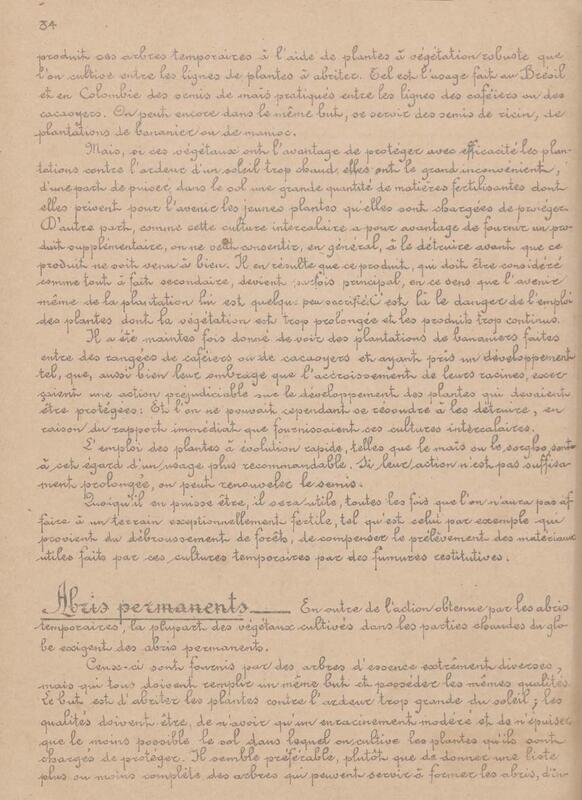 34
produit ces arbres temporaires à l'aide de plantes à végétation robuste que
l'on cultive entre les lignes de plantes à abriter. Tel est l'usage fait au Brésil
et en Colombie des semis de maïs pratiqués entre les lignes des caféiers ou des
cacaoyers. On peut encore dans le même but, se servir des semis de ricin, de
plantations de bananier ou de manioc.
Mais, si ces végétaux ont l'avantage de protéger avec efficacité les plan-
tations contre l'ardeur d'un soleil trop chaud, elles ont le grand inconvénient,
d'une part de puiser dans le sol une grande quantité de matières fertilisantes dont
elles privent pour l'avenir les jeunes plantes qu'elles sont chargées de protéger.
D'autre part, comme cette culture intercalaire a pour avantage de fournir un pro-
duit supplémentaire, on ne veut consentir, en général, à le détruire avant que ce
produit ne soit venu à bien. Il en résulte que ce produit, qui doit être considéré
comme tout à fait secondaire, devient parfois principal, en ce sens que l'avenir
même de la plantation lui est quelque peu sacrifié. C'est là le danger de l'emploi
des plantes dont la végétation est trop prolongée et les produits trop continus.
Il a été maintes fois donné de voir des plantations de bananiers faites
entre des rangées de caféiers ou de cacaoyers et ayant pris un développement
tel, que, aussi bien leur ombrage que l'accroissement de leurs racines, exer-
çaient une action préjudiciable sur le développement des plantes qui devaient
être protégées: Et l'on ne pouvait cependant se résoudre à les détruire, en
raison du rapport immédiat que fournissaient ces cultures intercalaires.
L'emploi des plantes à évolution rapide, telles que le maïs ou le sorgho, sont
à cet égard d'un usage plus recommandable. Si leur action n'est pas suffisa-
ment prolongée, on peut renouveler le semis.
Quoiqu'il en puisse être, il sera utile, toutes les fois que l'on n'aura pas af-
faire à un terrain exceptionnellement fertile, tel qu'est celui par exemple qui
provient du débroussement de forêts, de compenser le prélèvement des matériaux
utiles faits par ces cultures temporaires par des fumures restitutives.
Abris permanents___ En outre de l'action obtenue par les abris
temporaires, la plupart des végétaux cultivés dans les parties chaudes du glo-
be exigent des abris permanents.
Ceux-ci sont fournis par des arbres d'essence extrêment diverses,
mais qui tous doivent remplir un même but et posséder les mêmes qualités.
Le but est d'abriter les plantes contre l'ardeur trop grande du soleil; les
qualités doivent être, de n'avoir qu'un enracinement modéré et de n'épuiser
que le moins possible le sol dans lequel on cultive les plantes qu'ils sont
chargés de protéger. Il semble préférable, plutôt que de donner une liste
plus ou moins complète des arbres qui peuvent servir à former les abris, d'in-